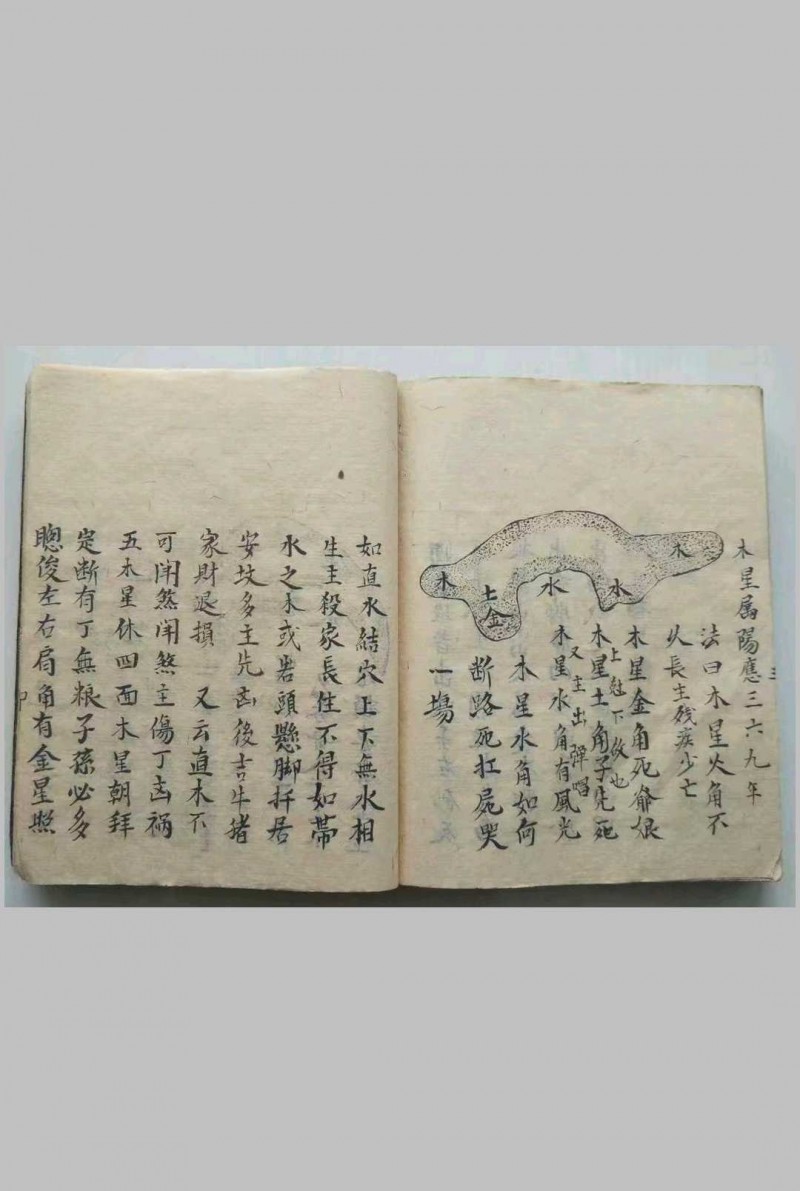 木星属陽應三六九年
法曰木星火角不
久長主残疾少亡
木星金角死爺娘
木星土角子先死
上尅下故也
又主出彈唱
木星水角有風光
木星水角如何
断路死扛屍哭
一塲
木
水
水
土
金
木
三
如直水結穴上下無水相
生主殺家長住不得如帶
水之木或岩頭懸脚扦居
安坟多主先凶後吉牛猪
家財退損 又云直木不
可開煞開煞主傷丁凶祸
五木星休四面木星朝拜
定断有丁無粮子孫必多
聰俊左右局角有金星照